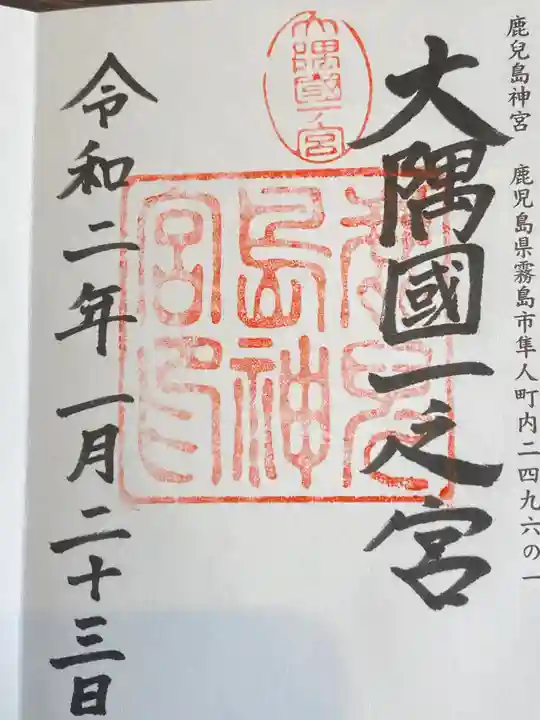 鹿兒島神宮　鹿児島県霧島市隼人町内二四九六の一
大隅國一之宮
大隅國一ノ宮
鹿兒島神宮印
令和二年一月二十三日